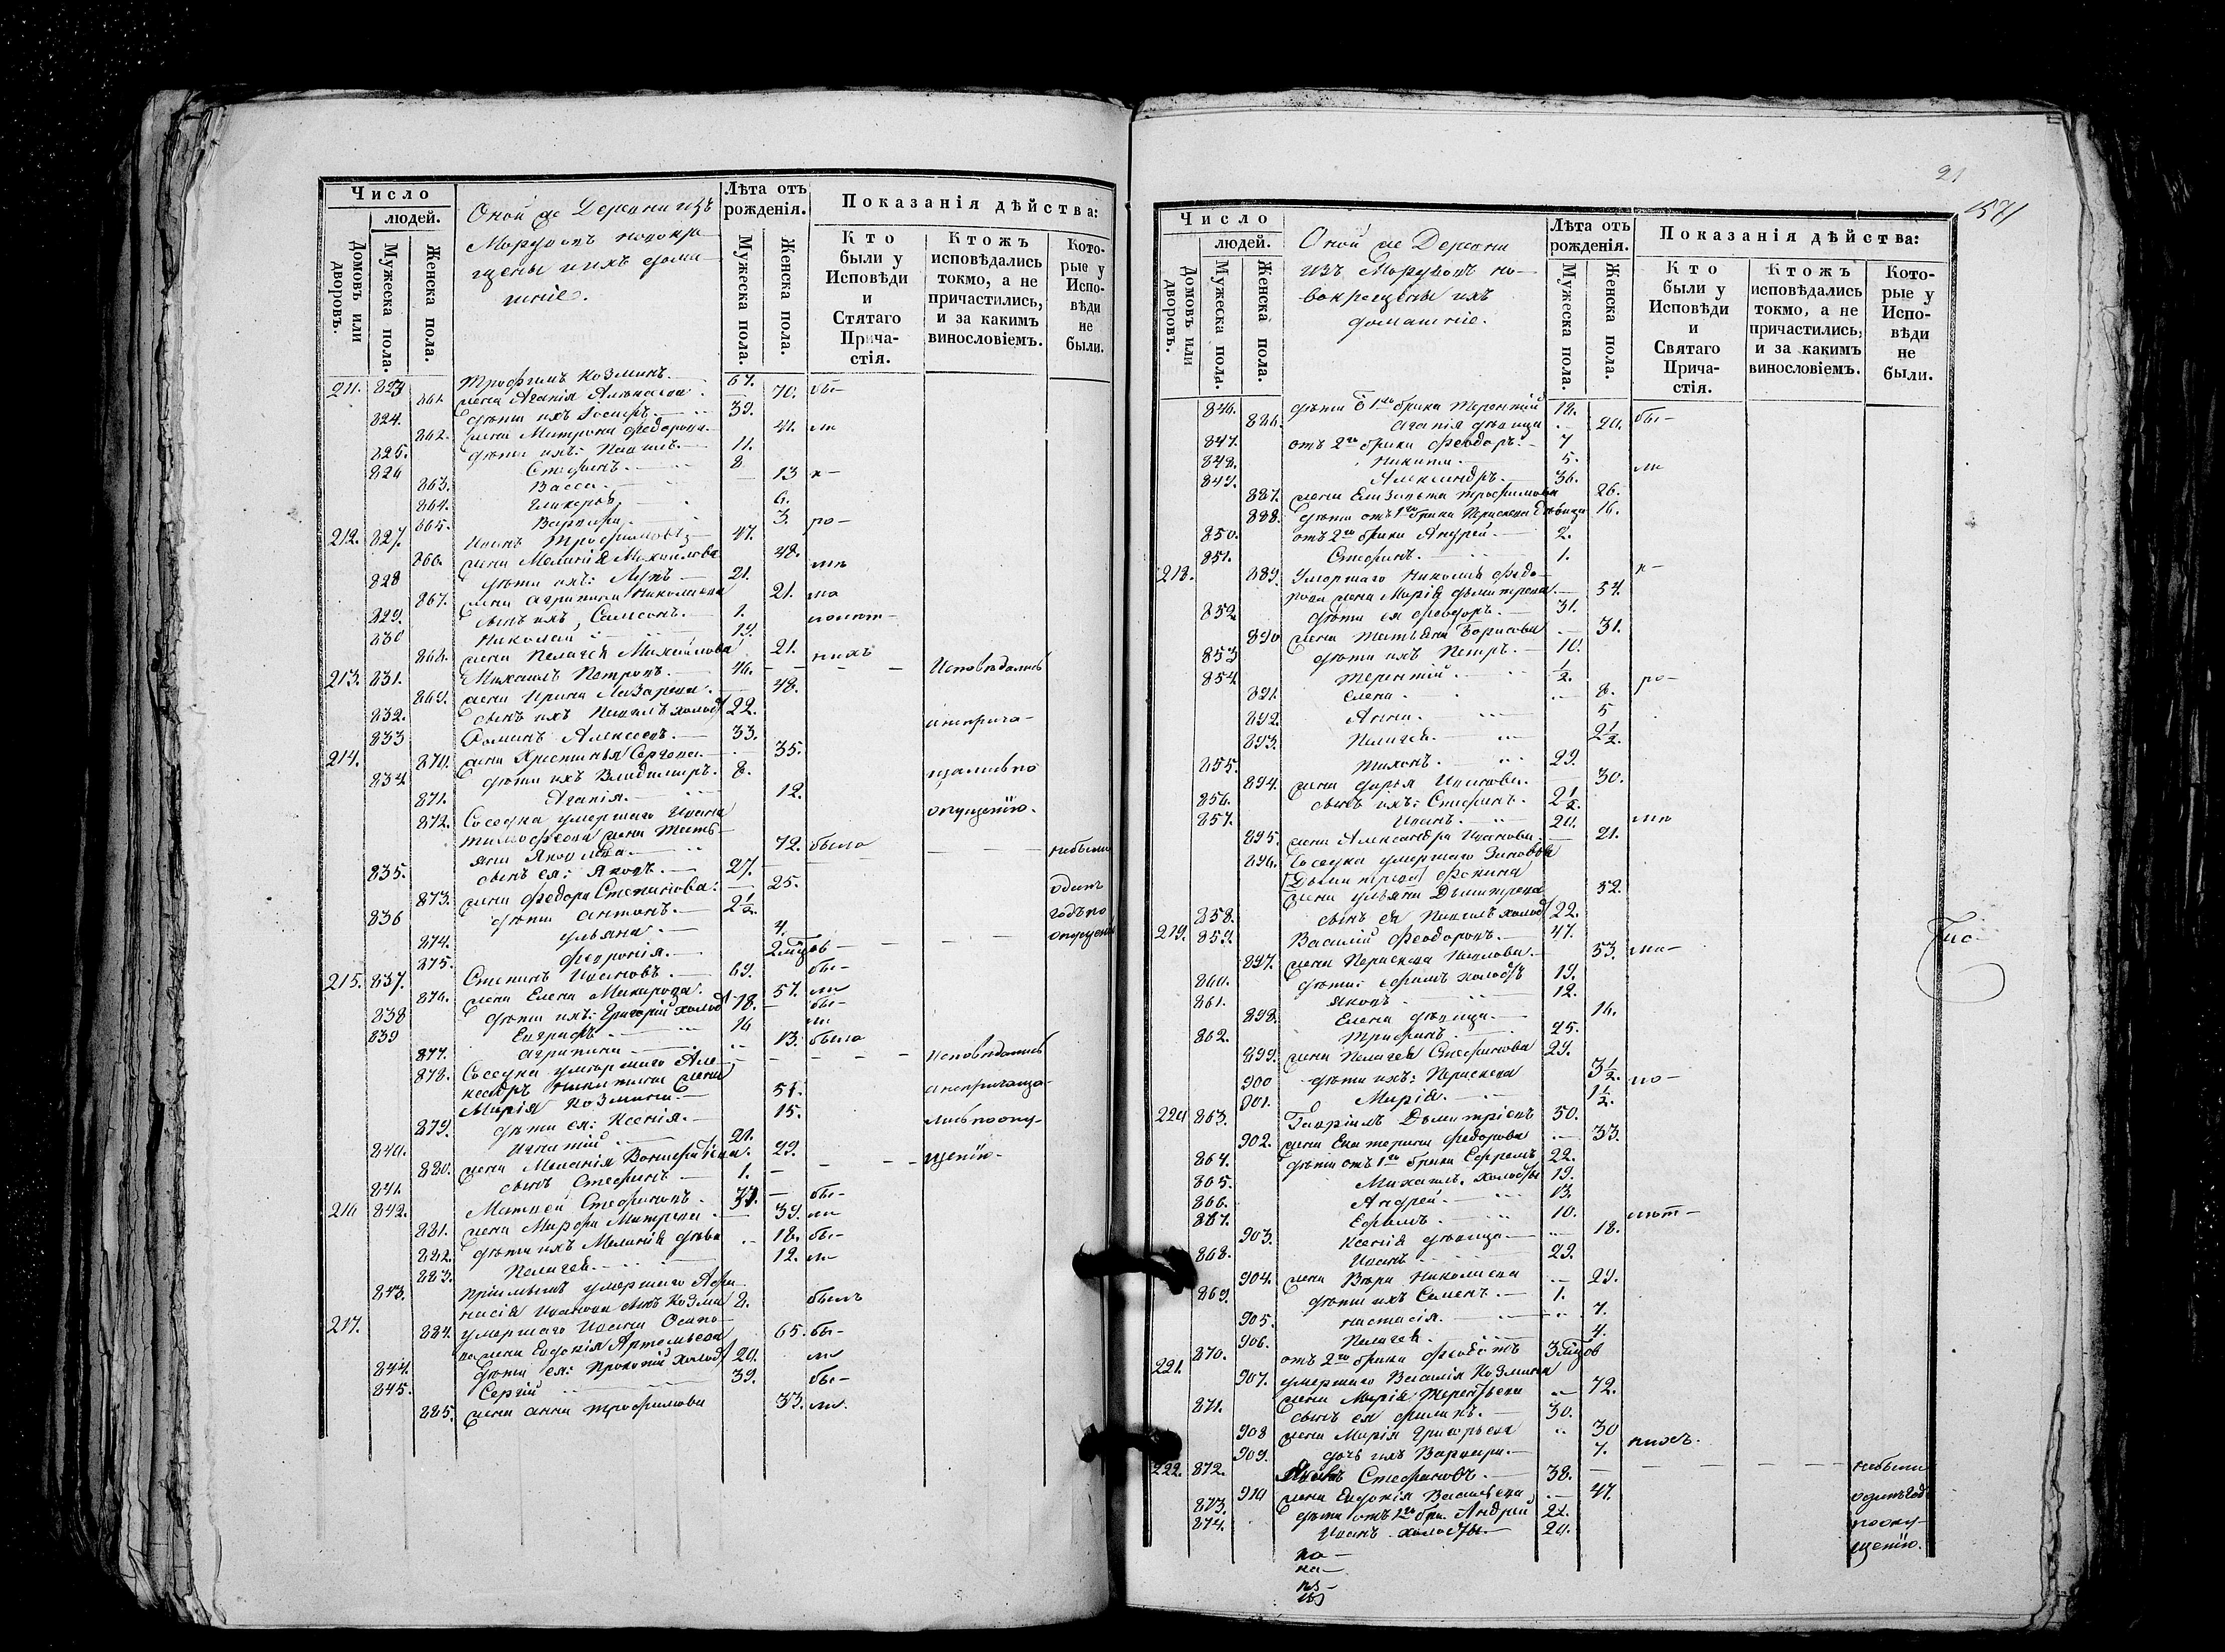 Число
людей.
Домовъ или дворовъ.
Мужеска пола.
Женска пола.
Оной же Деревни изъ
Мордвовъ новокре
щены и ихъ дома
шніе.
Лѣта отъ рожденія.
Мужеска пола.
Женска пола.
Показанія дѣйства:
Кто были у Исповѣди и Стятаго Прича- стія.
Ктожъ исповѣдались токмо, а не причастились, и за какимъ винословіемъ.
Кото- рые у Испо- вѣди не были.
211. 823 Трофимъ Козминъ. 67.
861. жена Агапія 70. бы-
824. дѣти ихъ 39.
862. жена Матрена Федорова. 41. ли
825. дѣти ихъ: Павелъ. 11.
826 Стефанъ. 8
863. Васса. 13 к-
864. 6.
865. Варвара. 3. ро-
212. 827. Иванъ Трофимовъ 47.
866. жена Меланія Михайлова 48.
828 дѣти ихъ: 21.
867. жена Агрипина Николаева 21.
829. сынъ ихъ, Самсонъ. 1.
830 Николай 19.
868. жена Пелагея Михайлова 21. нихъ
213. 831. Михаилъ Петровъ. 46. Исповѣдались
869. жена Ирина Лазарева. 48.
832. сынъ ихъ Павелъ холост 22. инеприча-
833 Романъ Алексеевъ. 33.
214. 870. жена Христинья Сергеева. 35.
834 дѣти ихъ Владимиръ. 8. щались по
871. Агапія. 12.
872. Соседка умершаго Ивана опущенію.
Тимофеева жена Тать-
яна Яковлева. 72. была
835. сынъ ея: Яковъ. 27. небыли
873. жена Федора Степанова: 25. одинъ
836 дѣти Антонъ. 2½. годъ по
874. Ульяна. 4. опущенію
875. Феврония. 2 мцов
215. 837. Степанъ Ивановъ. 69. бы-
876. жена Елена Макарова. 57. ли
838 дѣти ихъ: Григорій холост 18. бы-
839 Евграфъ 16 ли
877. Агрипина 13. была
878. Соседка умершаго Але- Исповѣдались
ксандръ Никитина жена
Марія Козмина. 51. анепричаща-
879. дѣти ея: Ксенія. 15. лись по опу-
840. Игнатій 21.
880. жена Меланія 23. щенію.
841. сынъ Стефанъ 1.
216 842. Матвей Стефановъ. 37. бы-
881. жена Марфа Митрева 39. ли
882. дѣти ихъ Меланія дѣва 18. бы-
883. Пелагея. 12. ли
843. Пріимышъ умершаго Афа
насія Иванова сынъ Козма 8. былъ
217. 884. умершаго Ивана Осипо-
ва жена Евдокія Артемьева 65. бы-
844. дѣти ея: Прокопій холост 20. ли
845. Сергій 39. бы-
885. жена Анна Трофимова 33. ли.
21
571
Число
людей.
Домовъ или дворовъ.
Мужеска пола.
Женска пола.
Оной же Деревни
изъ Мордвовъ но-
вокрещены ихъ
домашніе.
Лѣта отъ рожденія.
Мужеска пола.
Женска пола.
Показанія дѣйства:
Кто были у Исповѣди и Святаго Прича- стія.
Ктожъ исповѣдались токмо, а не причастились, и за какимъ винословіемъ.
Кото- рые у Испо- вѣди не были.
846. дѣти 1го брака Терентій 18.
886. Агапія дѣвица 20. бы-
847. отъ 2го брака Феодоръ. 7
848. Никита 5.
849. Александръ. 36. ли
887. жена Елизавета Трофимова 26.
888. дѣти отъ 1го брака Праскева дѣвица 16.
850. отъ 2го брака Андрей. 2.
851. Стефанъ. 1.
218. 889. Умершаго Николая Федо- к-
рова жена Марія Дмитрева. 54.
852 дѣти ея Феодоръ. 31.
890 жена Татьяна Борисова 31.
853 дѣти ихъ Петръ. 10.
854 Терентій ½.
891. Елена. 8. ро-
892. Анна. 5
893. Пелагея. 2½.
855. Тихонъ. 29.
894. жена Дарья Иванова. 30.
856. сынъ ихъ: Стефанъ. 2½.
857. Иванъ. 20.
895. жена Александра Иванова. 21.
896. Соседка умершаго Зиновья
Дмитрева Фокина
жена Ульяна Дмитрева 52.
858. сынъ ея Павелъ холост 22.
219. 859. Василій Феодоровъ. 47.
897. жена Праскева Павлова. 53.
860. дѣти: Ефимъ холостъ 19.
861. Яковъ 12.
898. Елена дѣвица 16.
862. Трифонъ 25.
899. жена Пелагея Стефанова 29.
900 дѣти ихъ: Праскева 3½.
901. Марія. 1½.
220 863. Гавріилъ Дмитріевъ 50.
902. жена Екатерина Федорова 33.
864. дѣти отъ 1го брака Ефремъ 22.
865. Михаилъ, холосты 19.
866. Андрей. 13.
867. Ефимъ. 10.
903. Ксенія дѣвица 18.
868. Иванъ 29.
904. жена Вѣра Николаева 29.
869. дѣти ихъ Семенъ. 1.
905. Настасія. 7.
906. Пелагея. 4.
870. отъ 2го брака 3 мцов
221. 907. умершаго Василія Козмина
жена Марія Терентьева 72.
871. сынъ ея Филипъ. 30.
908 жена Марія Григорьева 30
909. дочь ихъ Варвара. 7. нихъ.
222. 872. Стефановъ. 38. небыли
910 жена Евдокія Васильева 47. одинъ год
873. дѣти отъ 1го бра. Андрей 22.
874. Иванъ холосты. 20. по опу-
щенію.